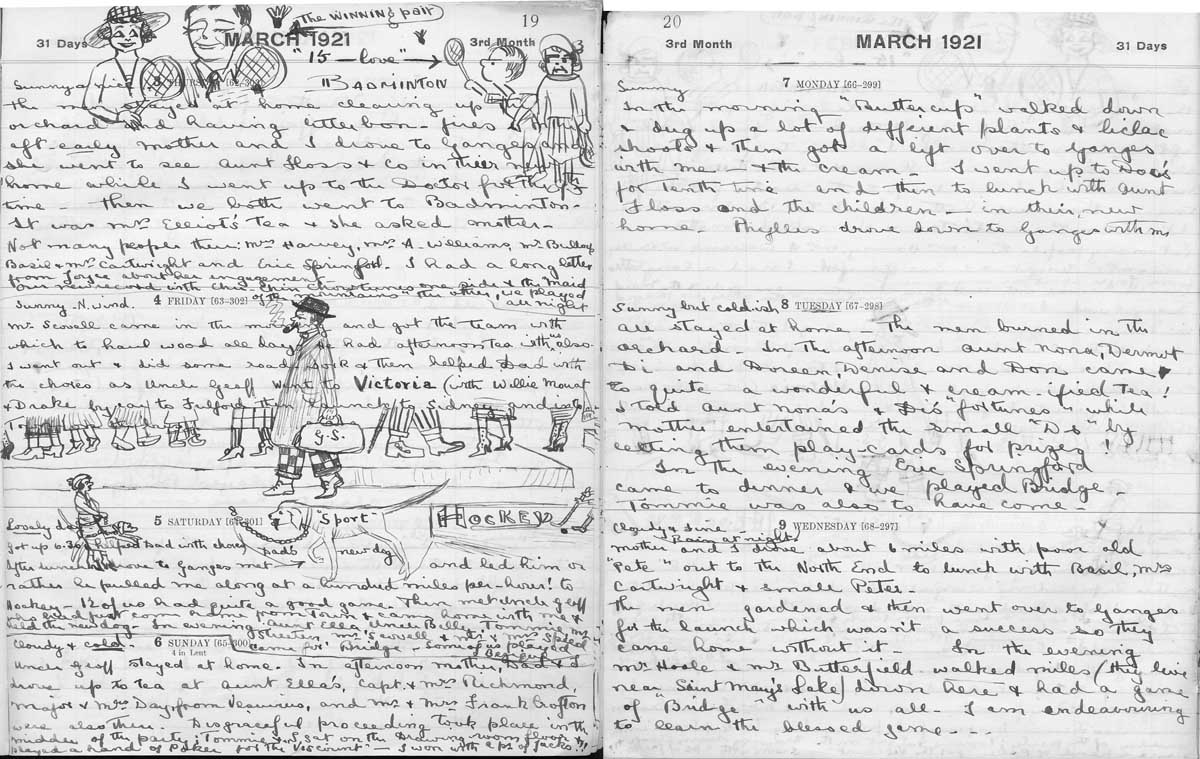 19
The WINNING pair
31 Days
MARCH 1921
3rd Month
"15 — love" →
BADMINTON
Sunny
the at home clearing up
orchard and having litter bon-fires
aft-early mother and I drove to Ganges and
she went to see Aunt Floss & Co in their
home while I went up to the Doctor for the
time — Then we both went to Badminton —
It was Mrs Elliot's Tea & she asked mother —
Not many people there: Mrs Harvey, Mrs A. Williams, Mr
Basil & Mrs Cartwright and Eric Springford. I had a long letter
from Joyce about her engagement
one side & the maid
of the mountains the other, we played
all night
Sunny - N. wind.
4 FRIDAY [63-302]
Mr Scovell came in the and got the team with
which to haul wood all day had afternoon tea with us also.
I went out & did some road work & then helped Dad with
the chores as Uncle Geoff went to Victoria (with Willie Mouat
& Drake by car to Fulford
G.S.
5 SATURDAY [64-301]
Lovely day
"Sport"
HOCKEY
got up helped Dad with chores
Dad's new dog
After lunch drove to Ganges met → and led him or
rather he pulled me along at a hundred miles per-hour! to
Hockey — 12 of us had quite a good game. Then met Uncle Geoff
home from Town & came home with me &
the new dog. In evening Aunt Ella, Uncle Bill, Tommie, Mr
Streeter, Mr Scovell & Mr & Mrs Speed
came for Bridge — Some of us played
Cloudy & cold.
6 SUNDAY [65-300]
4 in Lent
Uncle Geoff stayed at home. In afternoon mother, Dad & I
drove up to tea at Aunt Ella's, Capt & Mrs Richmond,
Major & Mrs Day, from Vesuvius, and Mr & Mrs Frank Crofton
were also there. Disgraceful proceeding took place in the
middle of the party; Tommie & I sat on the drawing-room floor &
played a hand of Poker for "the Viscount" — I won with a pr of Jacks!!
20
3rd Month
MARCH 1921
31 Days
7 MONDAY [66-299]
Sunny
In the morning "Buttercup" walked down
& dug up a lot of different plants & lilac
shoots & then got a lift over to Ganges
with me — & the cream — I went up to Doc's
for tenth time and then to lunch with Aunt
Floss and the children — in their new
home. Phyllis drove down to Ganges with me
8 TUESDAY [67-298]
Sunny but coldish
all stayed at home — The men burned in the
orchard. In the afternoon Aunt Nona, Dermot
Di and Doreen, Denise and Don came
to quite a wonderful & cream-ified tea!
I told Aunt Nona's & Di's "fortunes" while
mother entertained the small "D's" by
letting them play-cards for prizes!
In the evening Eric Springford
came to dinner & we played Bridge —
Tommie was also to have come —
9 WEDNESDAY [68-297]
Cloudy & fine
Rain at night
Mother and I drove about 6 miles with poor old
"Pete" out to the North End to lunch with Basil, Mrs
Cartwright & small Peter.
The men gardened & then went over to Ganges
for the launch which wasn't a success so they
came home without it — In the evening
Mr Hoole & Mr Butterfield walked miles (they live
near "Saint Mary's Lake) down here & had a game
of "Bridge" with us all — I am endeavouring
to learn the blessed game - - -